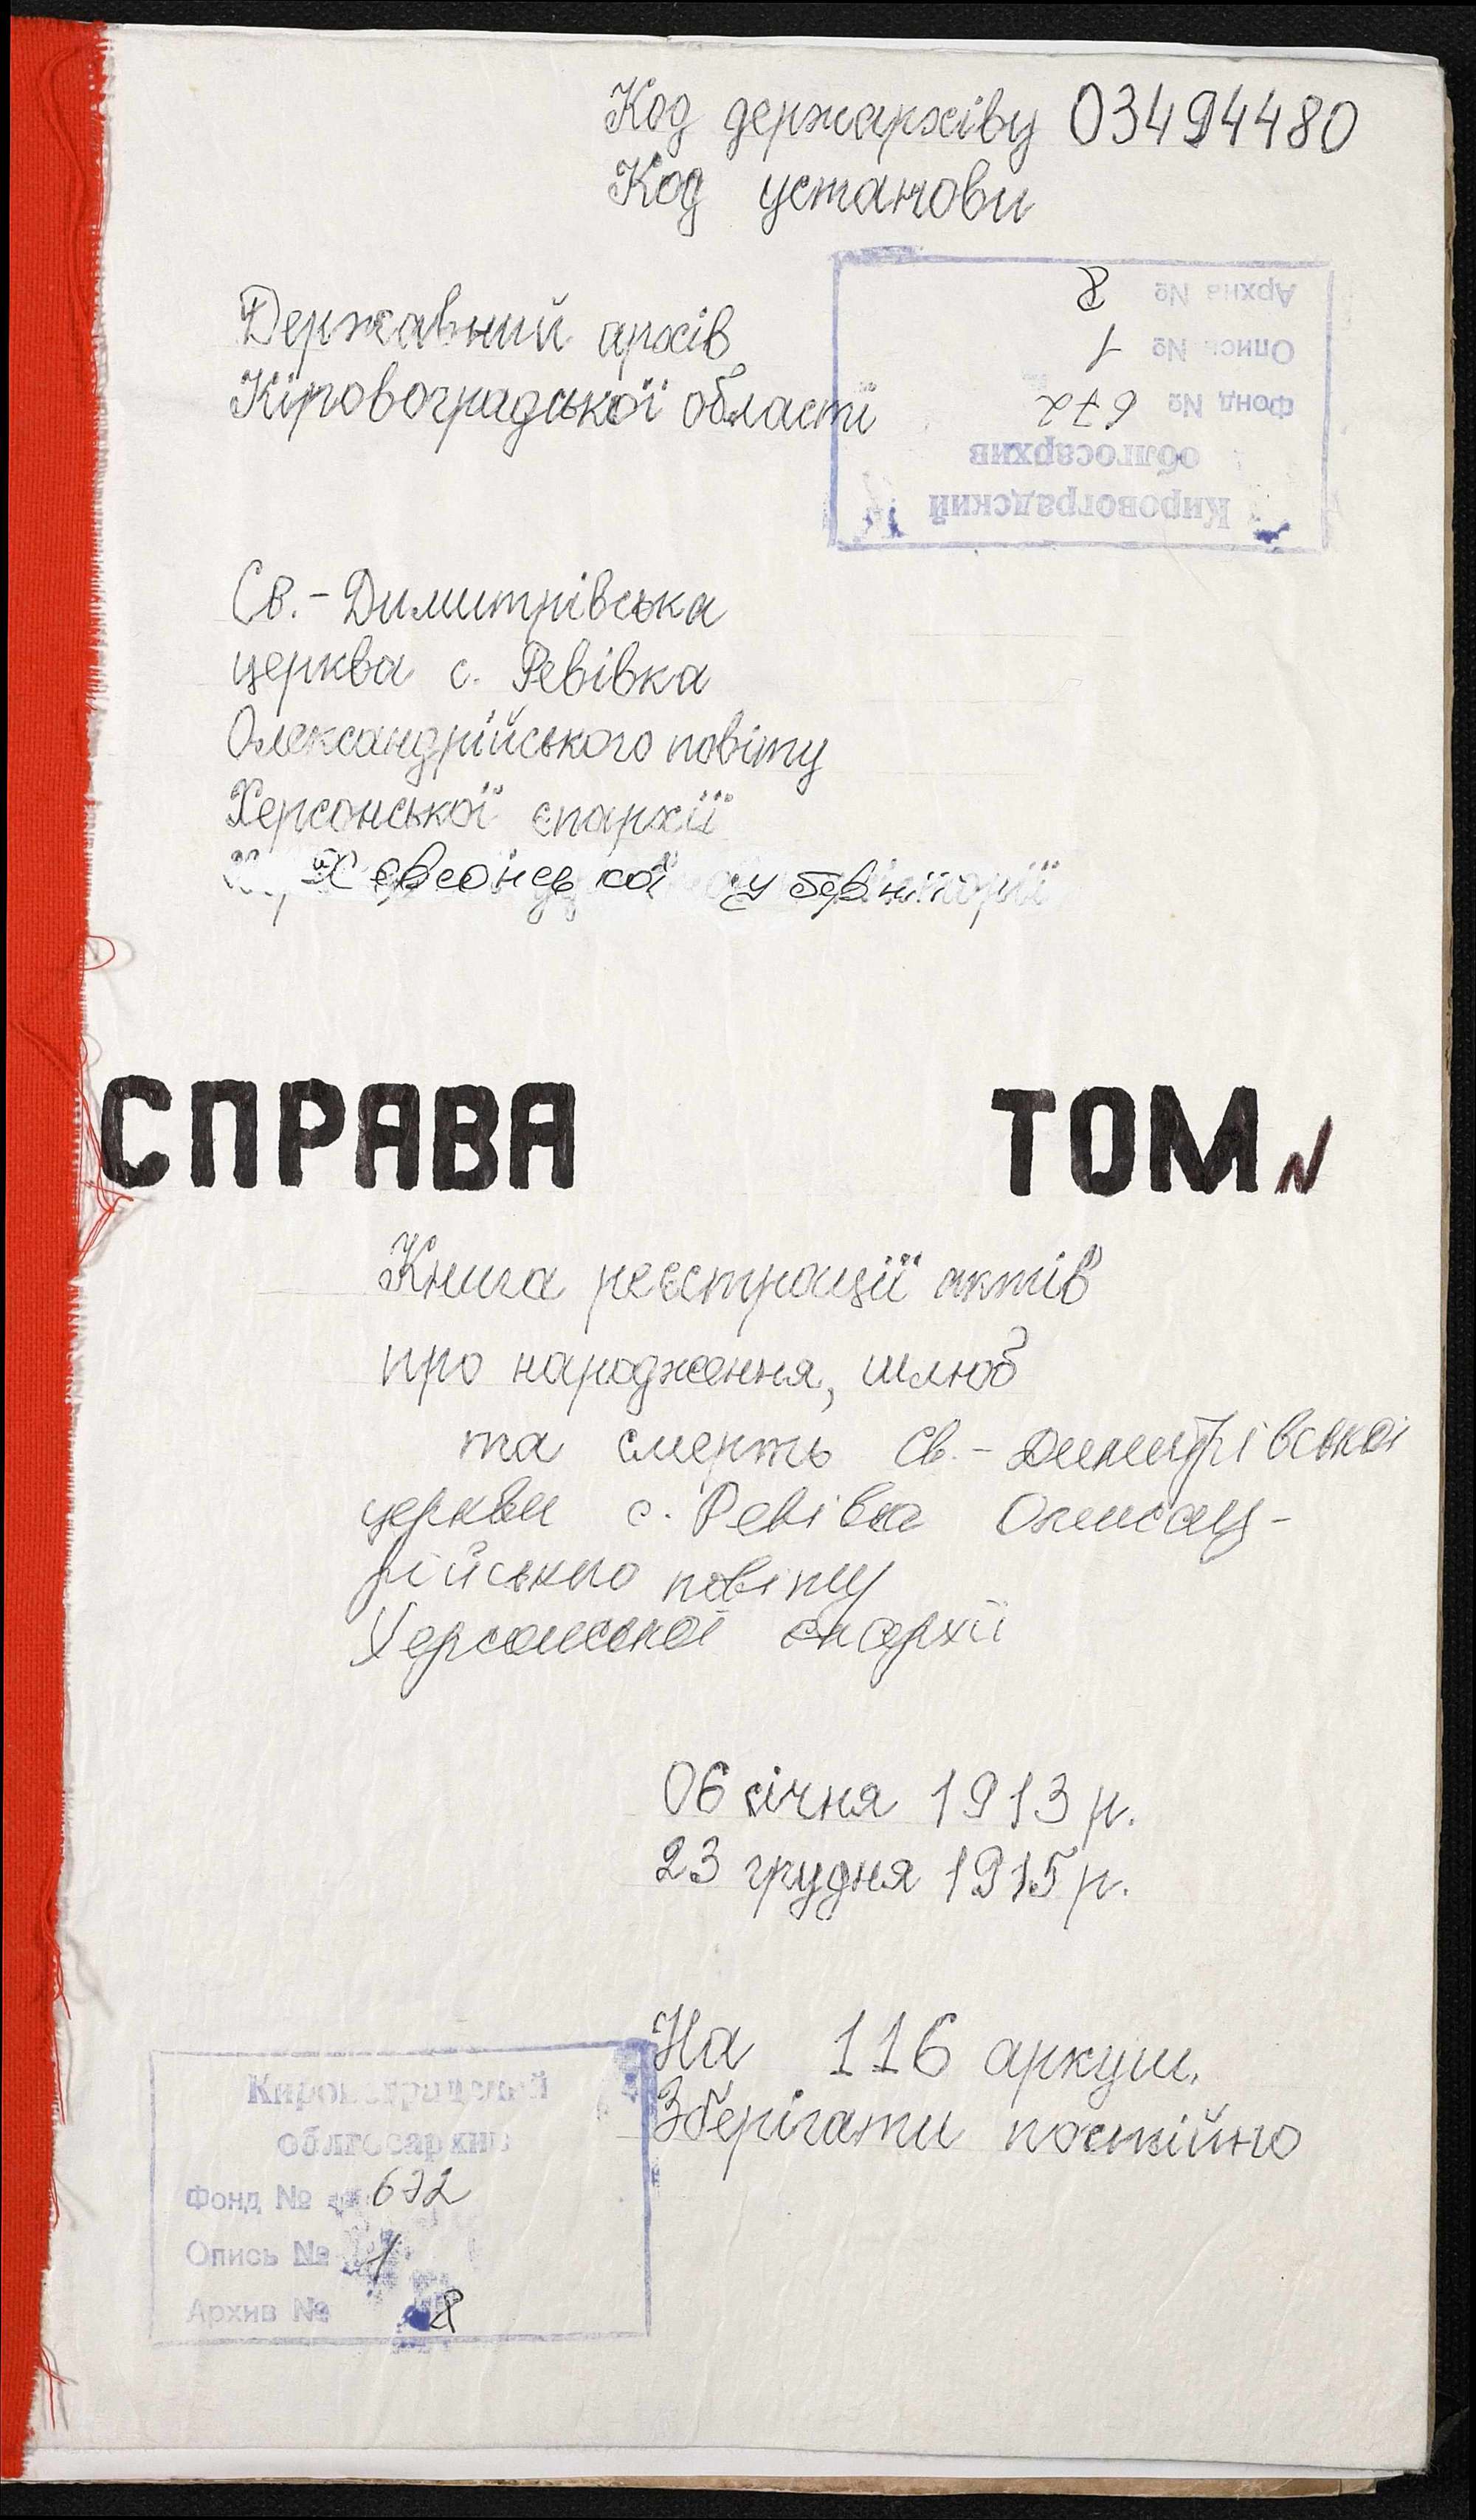 Код держархіву 03494480
Код установи
Державний архів
Кіровоградської області
Кировоградский
облгосархив
Фонд № 672
Опись № 1
Архив № 8
Св.-Димитрівська
церква с. Ревівка
Олександрійського повіту
Херсонської єпархії
Херсонської губернії
СПРАВА ТОМ
Книга реєстрації актів
про народження, шлюб
та смерть Св.-Димитрівської
церкви с. Ревівка Олександ-
рійського повіту
Херсонської єпархії
06 січня 1913 р.
23 грудня 1915 р.
На 116 аркуш.
Зберігати постійно
Кировоградский
облгосархив
Фонд № 672
Опись № 1
Архив № 8